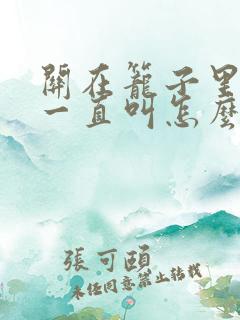 關在籠子里
一直叫怎麼
張可頤
未經同意禁止轉載